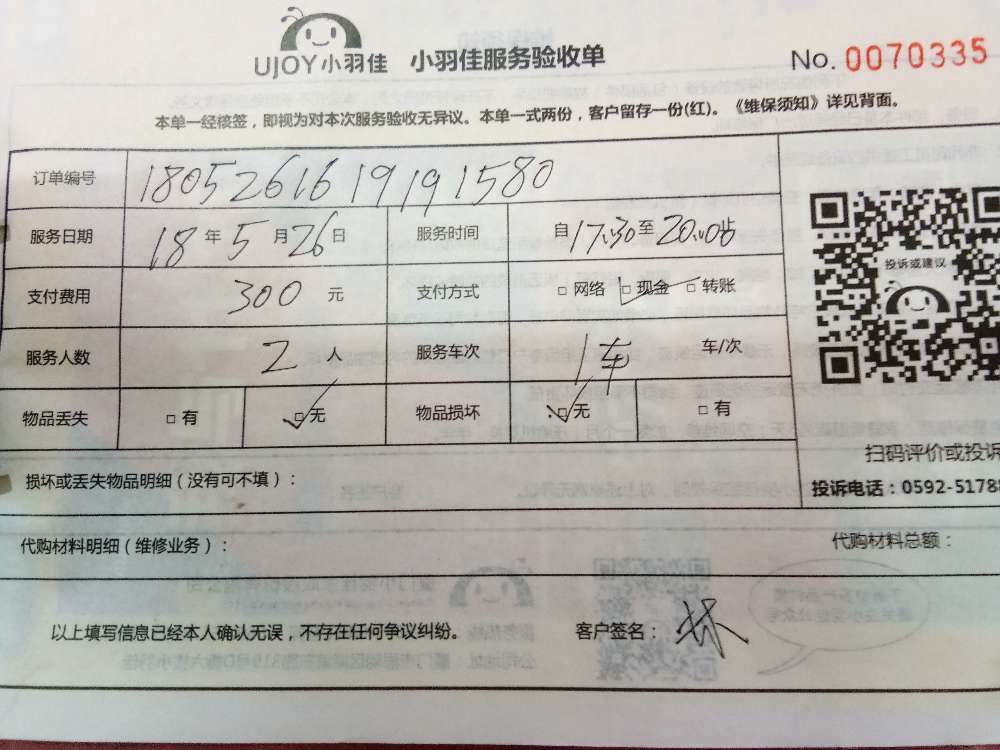 UJOY小羽佳 小羽佳服务验收单 No. 0070335
本单一经核签，即视为对本次服务验收无异议。本单一式两份，客户留存一份(红)。《维保须知》详见背面。
订单编号 1805261619191580
服务日期 18年5月26日 服务时间 自17:30至20:00止
支付费用 300元 支付方式 □网络 □现金 □转账
投诉或建议
服务人数 2人 服务车次 1车 车/次
物品丢失 □有 □无 物品损坏 □无 □有
扫码评价或投诉
损坏或丢失物品明细（没有可不填）：
投诉电话：0592-5178
代购材料明细（维修业务）： 代购材料总额：
以上填写信息已经本人确认无误，不存在任何争议纠纷。 客户签名：林